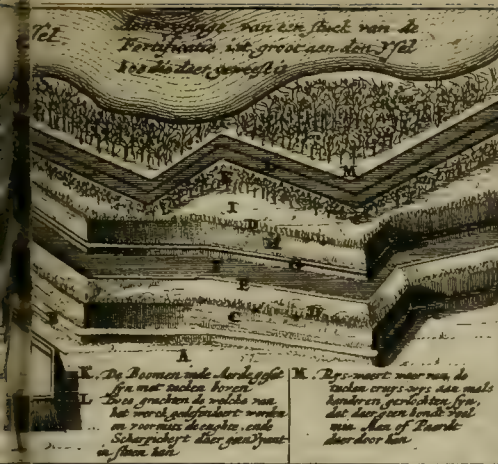 Isel
van een stuck van de
Fortificatie uit groot aen den Ysel
daer geweest is
M
I
D
E
C
H
A
K. De Boomen inde Aerde geset
syn met tacken boven
L. grachten de welcke van
het werck gedefendeert worden
en voormits de enghte, ende
Scharpichert daer geen
in staen kan
M. Rys-weert waer van, de
tacken cruys-wys aen mals
kanderen gevlochten syn,
dat daer geen hondt veel
min Man of Paerdt
daer door kan